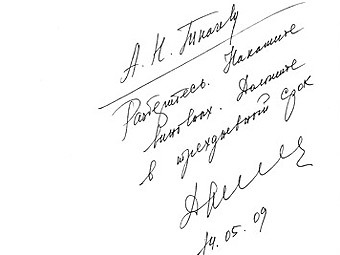 А. Н. Ткачеву
Разберитесь. Накажите
виновных. Доложите
в трехдневный срок
14.05.09